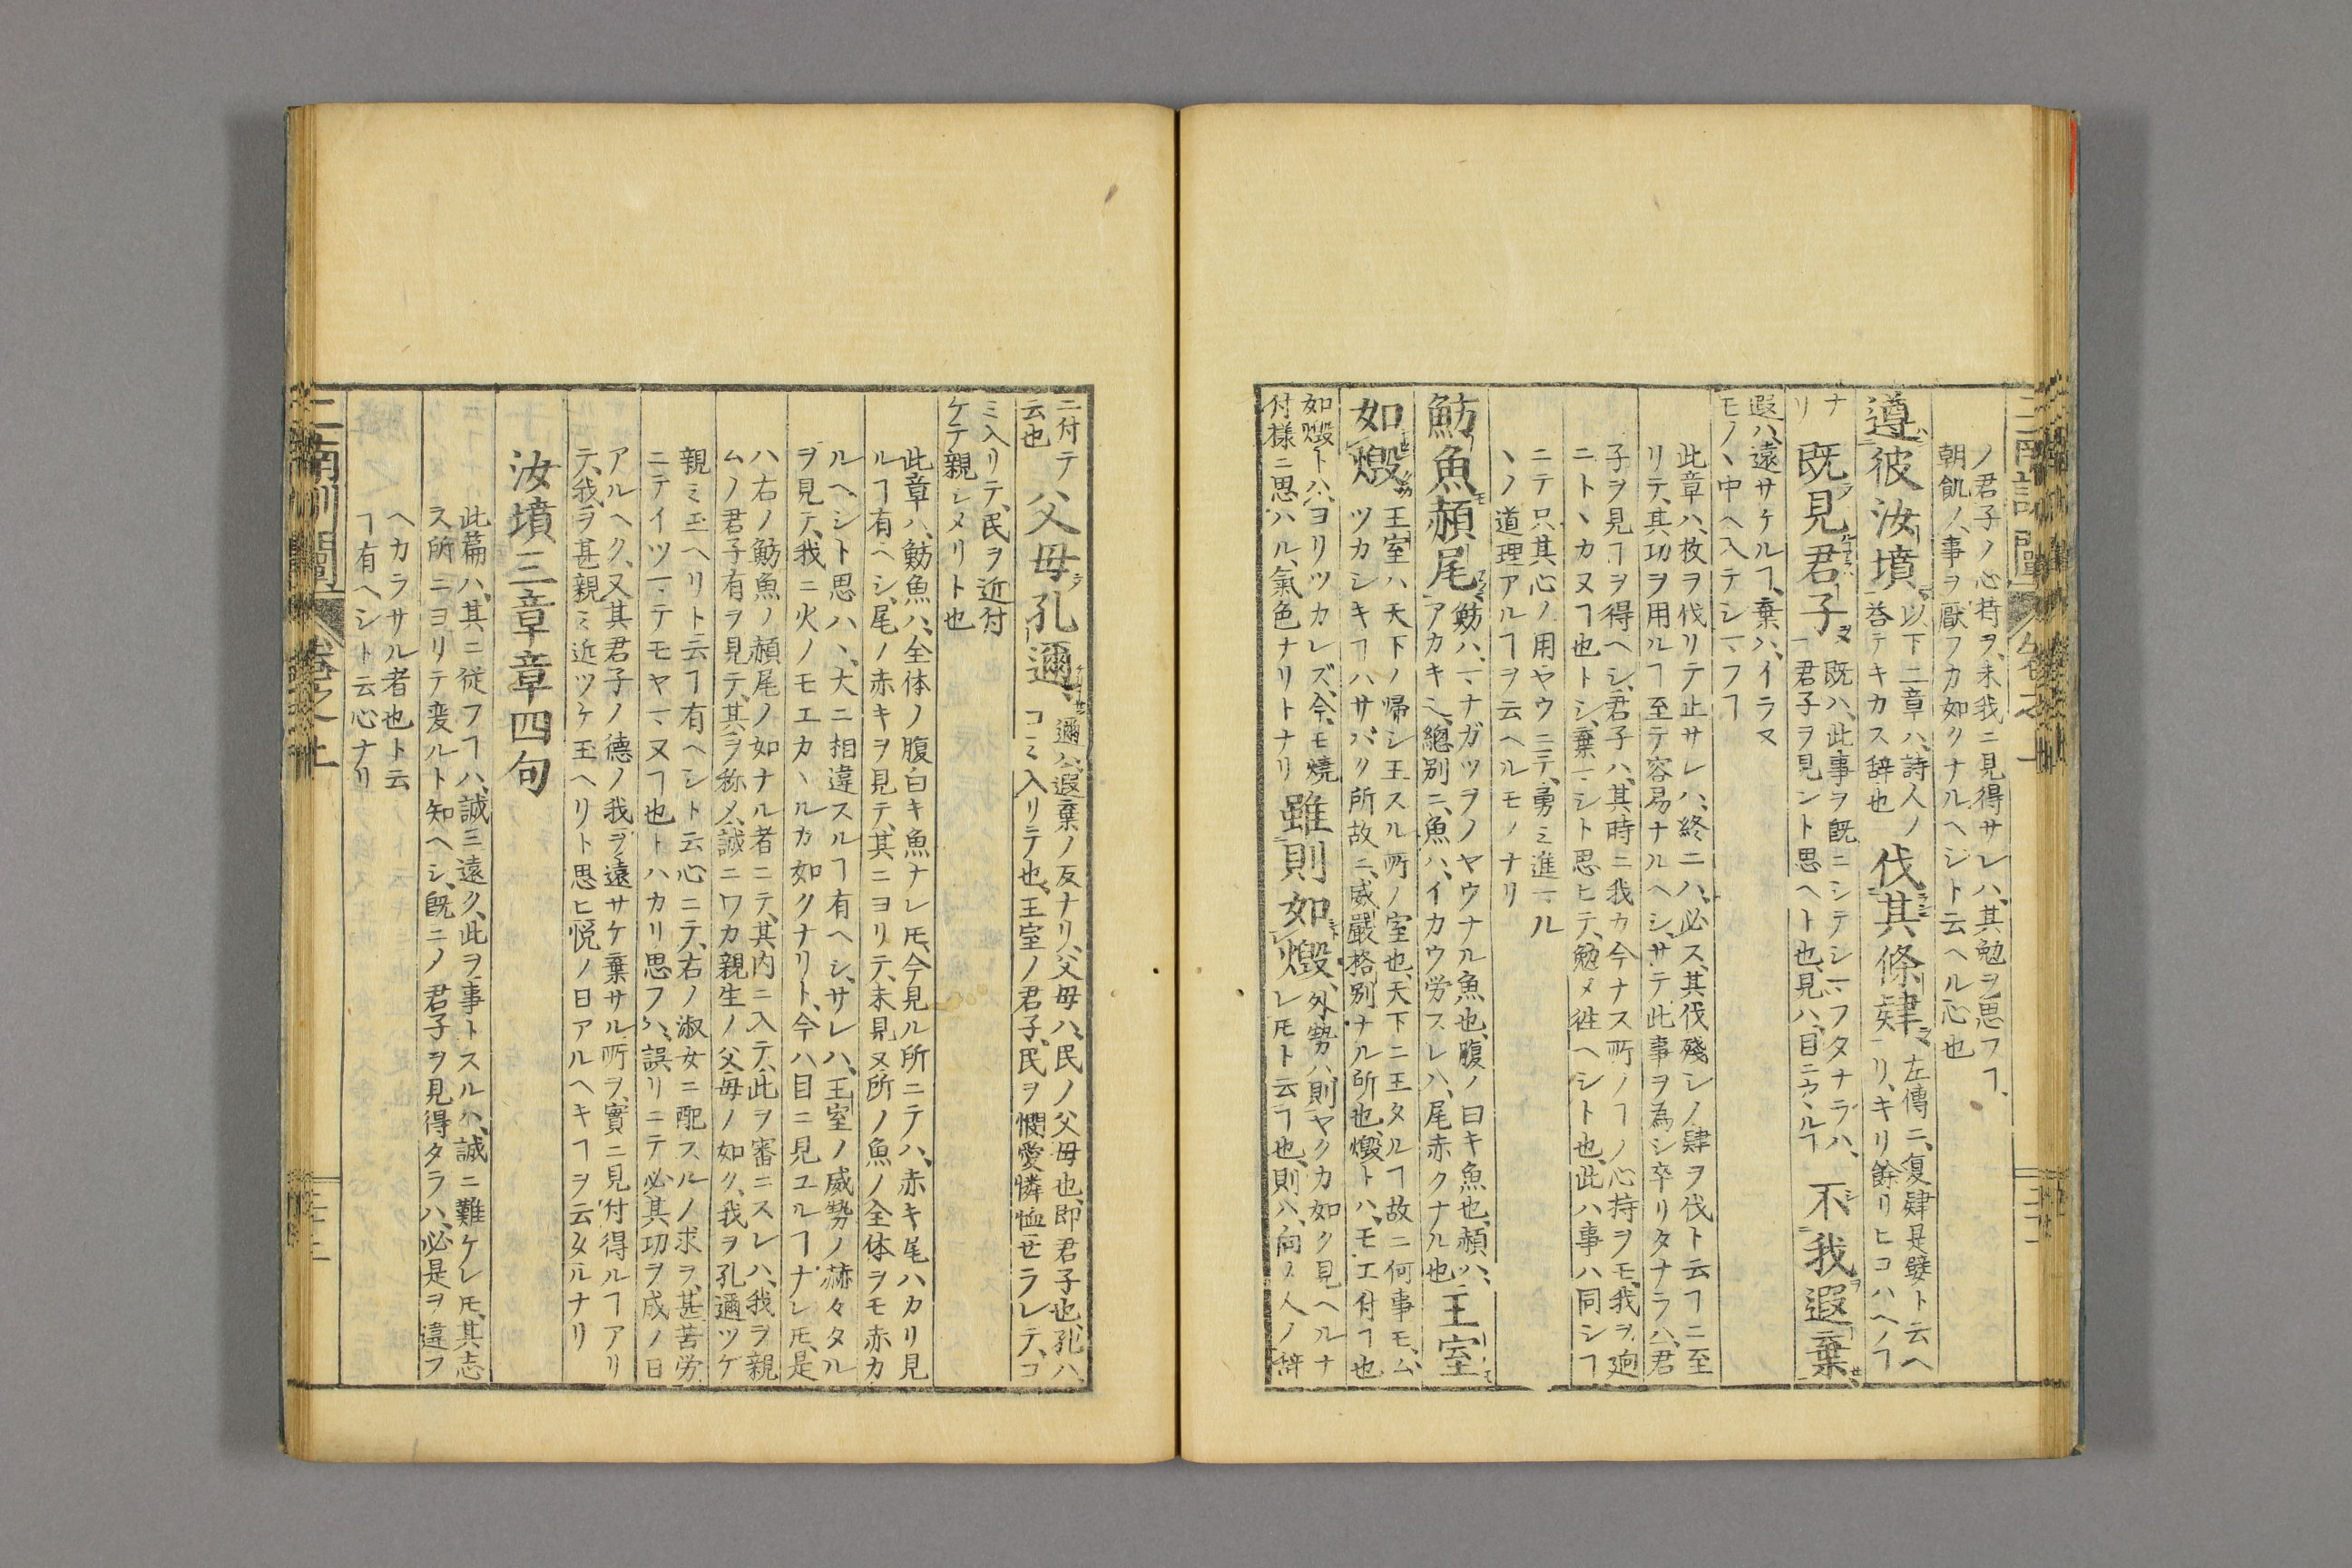 ノ君子ノ心持ヲ、未我ニ見得サレハ、其勉ヲ思フヿ、
朝飢ノ、事ヲ厭フカ如クナルヘシト云ヘル心也
遵彼汝墳 以下二章ハ、詩人ノ
答テキカス辞也 伐其條肄 左傳ニ、復肄是孽ト云ヘ
リ、キリ餘リヒコハヘノヿ
ナ
リ 既見君子 既ハ、此事ヲ既ニシテシマフタナラハ、
君子ヲ見ント思ヘト也、見ハ、目ニアタルヿ 不我遐棄
遐ハ、遠サケルヿ、棄ハ、イラヌ
モノヽ中ヘ入テシマフヿ
此章ハ、枚ヲ伐リテ止サレハ、終ニハ、必ス、其伐殘シノ肄ヲ伐ト云ヿニ至
リテ、其功ヲ用ルヿ至テ容易ナルヘシ、サテ此事ヲ為シ卒リタナラハ、君
子ヲ見ヿヲ得ヘシ、君子ハ、其時ニ我カ今ナス所ノヿノ心持ヲモ、我ヲ逈
ニトヽカヌヿ也トシ、棄マシト思ヒテ、勉メ徃ヘシト也、此ハ事ハ同シヿ
ニテ只其心ノ用ヤウニテ、勇ミ進マル
ヽノ道理アルヿヲ云ヘルモノナリ
魴魚赬尾 魴ハ、マナガツヲノヤウナル魚也、腹ノ白キ魚也、赬ハ、
アカキヿ、總別ニ、魚ハ、イカウ労スレハ、尾赤クナル也 王室
如燬 王室ハ天下ノ帰シ王スル所ノ室也、天下ニ王タルヿ故ニ何事モ、ム
ツカシキヿハサバク所故ニ、威嚴格別ナル所也、燬トハ、モエ付ヿ也
如燬トハ、ヨリツカレズ、今モ燒
付様ニ思ハル、氣色ナリトナリ 雖則如燬 外勢ハ、則ヤクカ如ク見ヘルナ
レ𪜈ト云ヿ也、則ハ、向ノ人ノ辞
ニ付テ
云也 父母孔邇 邇ハ、遐棄ノ反ナリ、父母ハ、民ノ父母也、即君子也、孔ハ、
コミ入リテ也、王室ノ君子、民ヲ憫愛憐恤セラレテ、コ
ミ入リテ、民ヲ近付
ケテ親シメリト也
此章ハ、魴魚ハ、全体ノ腹白キ魚ナレ𪜈、今見ル所ニテハ、赤キ尾ハカリ見
ルヿ有ヘシ、尾ノ赤キヲ見テ、其ニヨリテ、未見ヌ所ノ魚ノ全体ヲモ赤カ
ルヘシト思ハヽ、大ニ相違スルヿ有ヘシ、サレハ、王室ノ威勢ノ赫々タル
ヲ見テ、我ニ火ノモエカヽルカ如クナリト、今ハ目ニ見ユルヿナレ𪜈、是
ハ右ノ魴魚ノ赬尾ノ如ナル者ニテ、其内ニ入テ、此ヲ審ニスレハ、我ヲ親
ムノ君子有ヲ見テ、其ヲ称メ、誠ニワカ親生ノ父母ノ如ク、我ヲ孔邇ツケ
親ミ玉ヘリト云ヿ有ヘシト云心ニテ、右ノ淑女ニ配スルノ求ヲ、甚苦労
ニテイツマテモヤマヌヿ也トハカリ思フハ、誤リニテ必其功ヲ成ノ日
アルヘク、又其君子ノ德ノ我ヲ遠サケ棄サル所ヲ、實ニ見付得ルヿアリ
テ、我ヲ甚親ミ近ツケ玉ヘリト思ヒ悦ノ日アルヘキヿヲ云タルナリ
汝墳三章章四句
此篇ハ、其ニ從フヿハ、誠三遠ク、此ヲ事トスルハ、誠ニ難ケレ𪜈、其志
ス所ニヨリテ変ルト知ヘシ、既ニノ君子ヲ見得タラハ、必是ヲ違フ
ヘカラサル者也ト云
ヿ有ヘシト云心ナリ